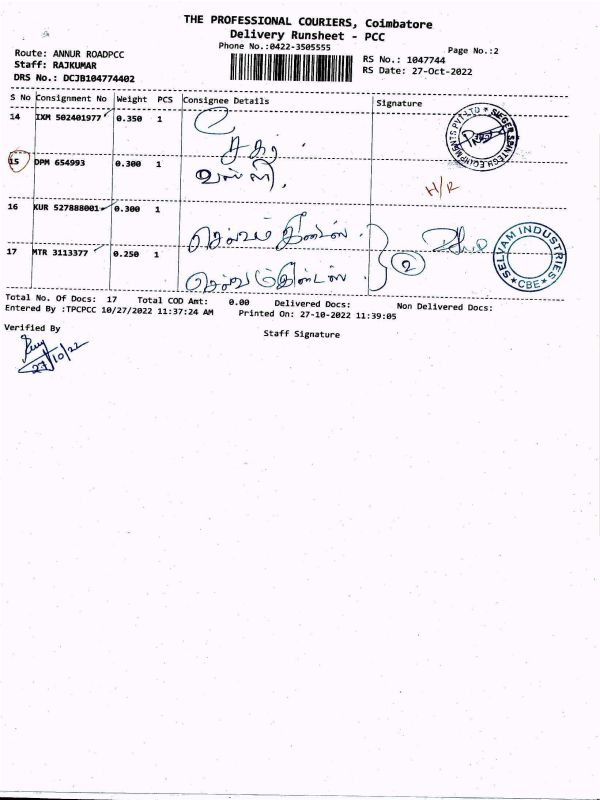 THE PROFESSIONAL COURIERS, Coimbatore
Delivery Runsheet - PCC
Phone No.:0422-3505555
Page No.:2
Route: ANNUR ROADPCC
RS No.: 1047744
Staff: RAJKUMAR
RS Date: 27-Oct-2022
DRS No.: DCJB104774402
S No Consignment No Weight PCS Consignee Details Signature
14 IXM 502401977 0.350 1
15 DPM 654993 0.300 1 வள்ளி.
H/R
16 KUR 527888001 0.300 1
17 MTR 3113377 0.250 1
2
SELVAM INDUSTRIES
★ CBE ★
Total No. Of Docs: 17 Total COD Amt: 0.00 Delivered Docs: Non Delivered Docs:
Entered By :TPCPCC 10/27/2022 11:37:24 AM Printed On: 27-10-2022 11:39:05
Verified By
Staff Signature
27/10/22